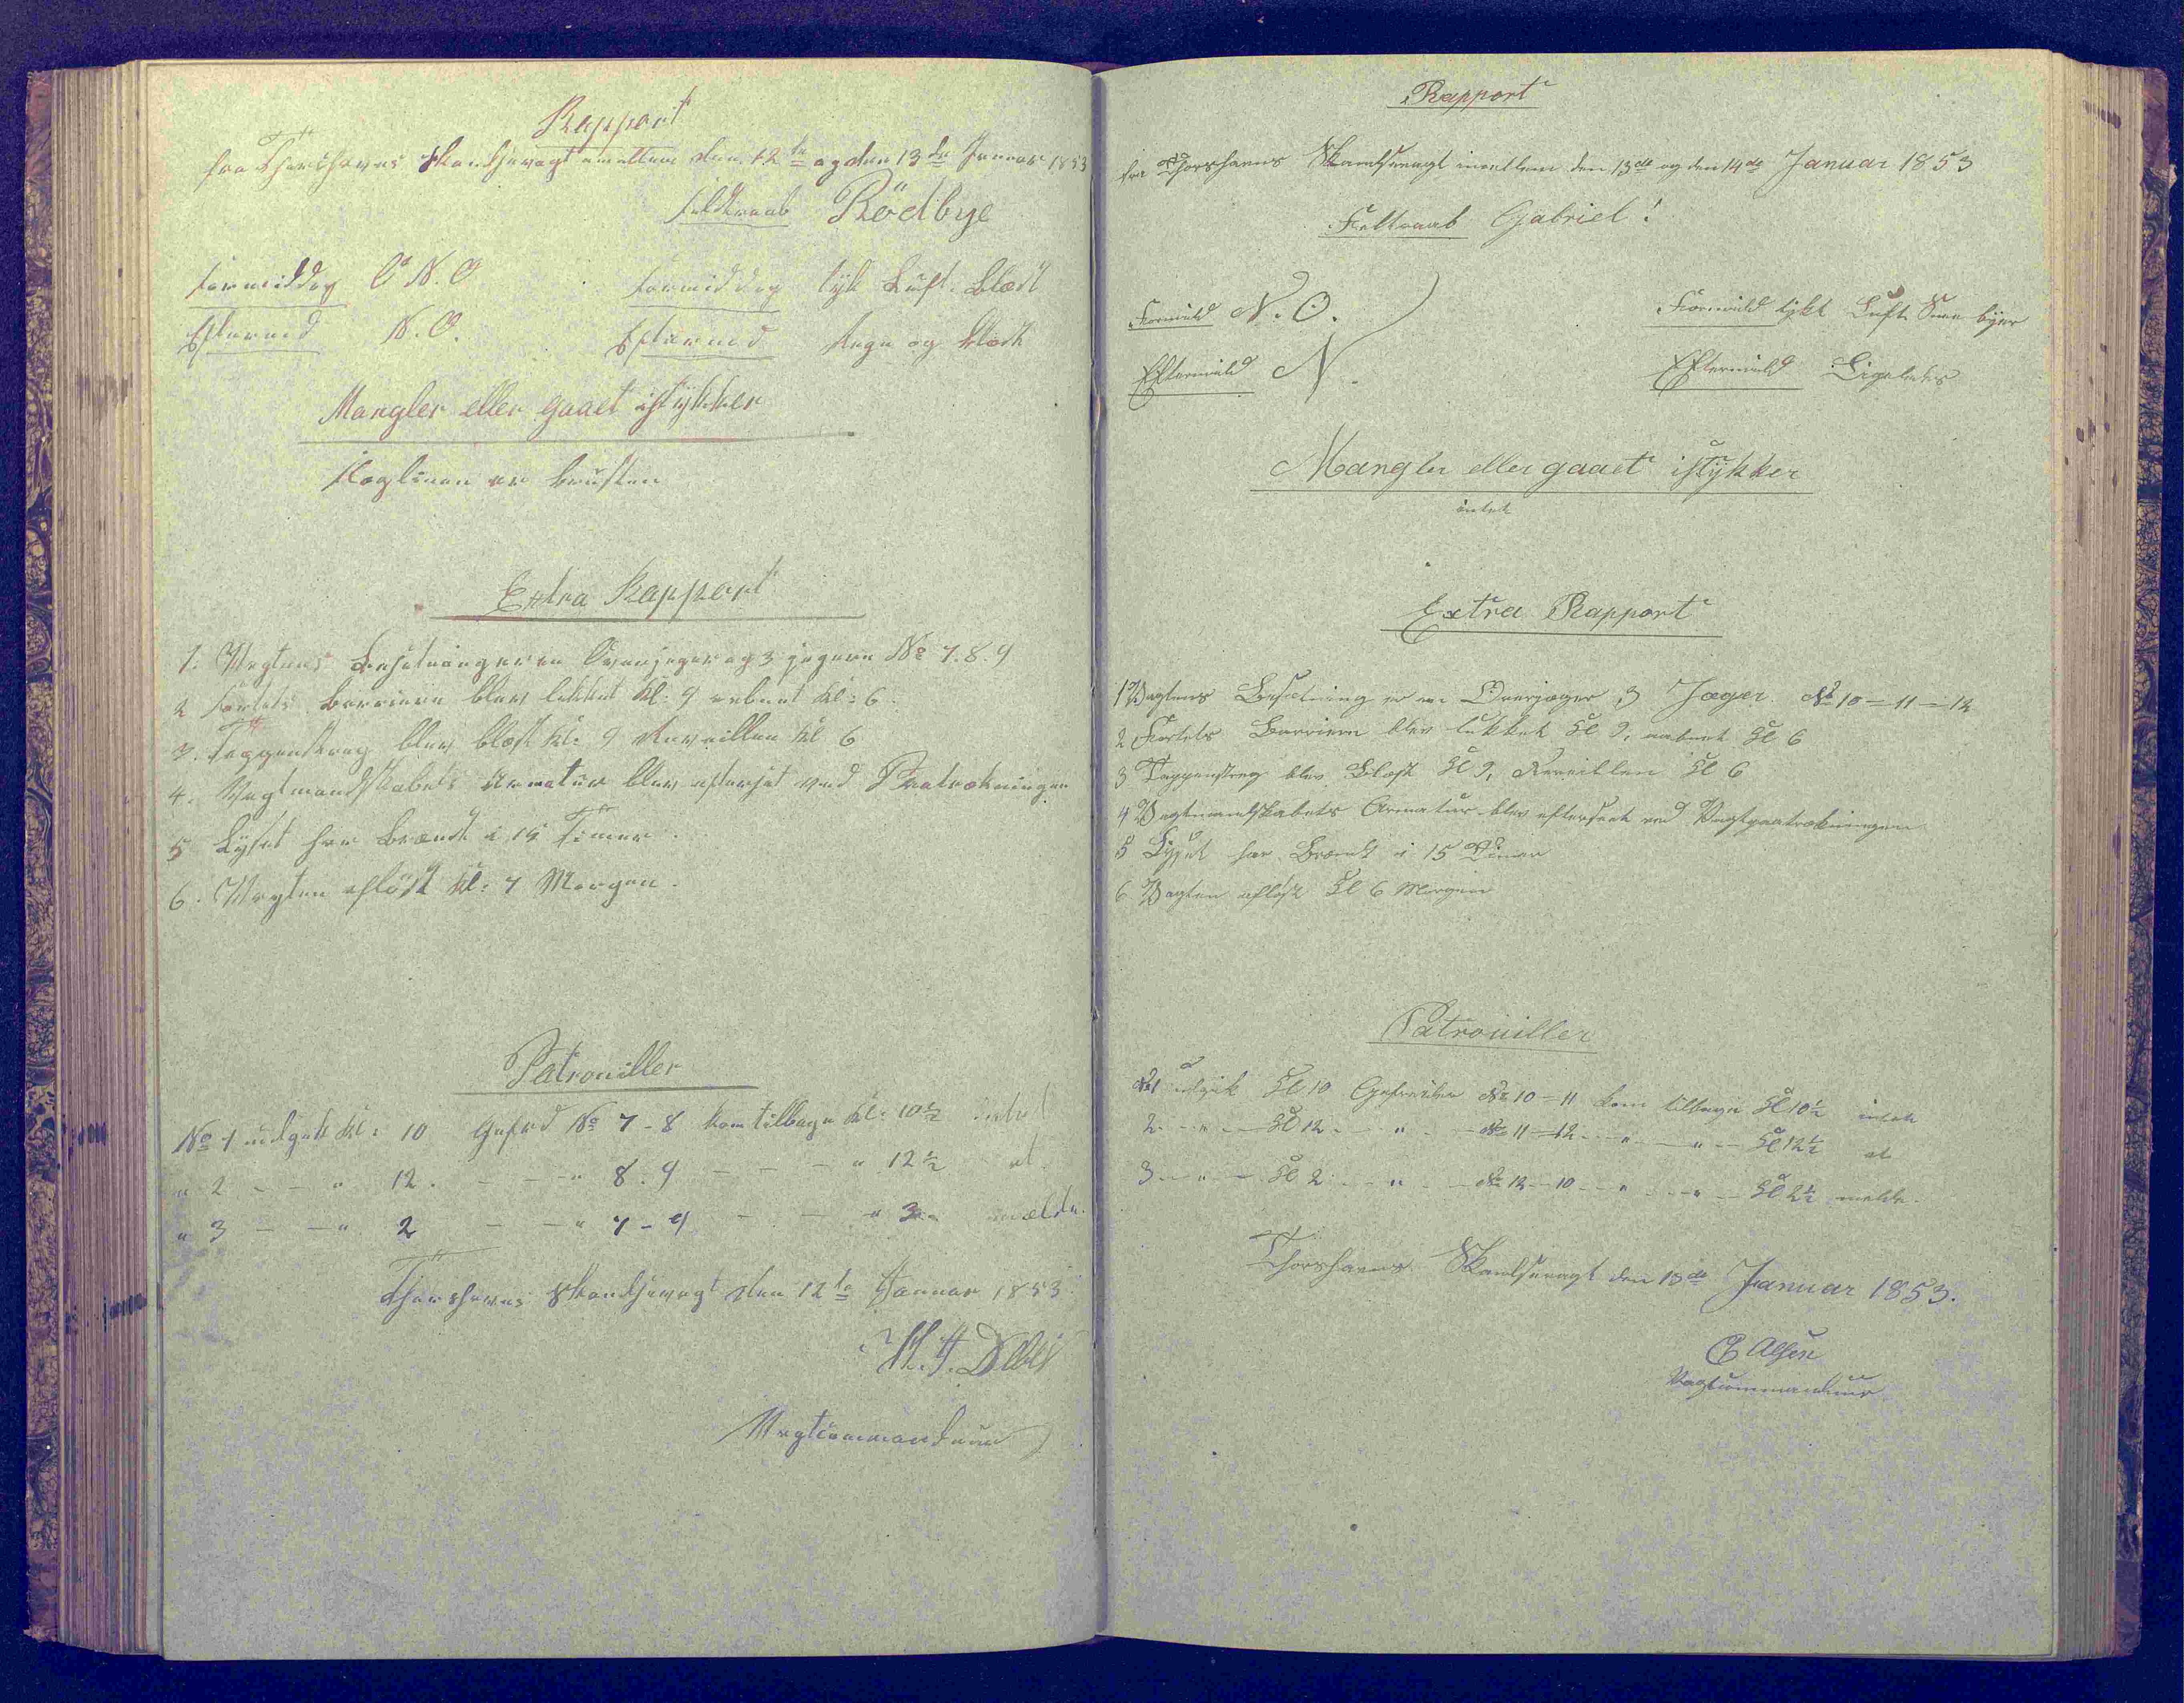 Rapport
fra Thorshavns Skandsevagt imellem den 12te og den 13de Januar 1853
Feldtraab Rödbye
Formiddag O N.O Formiddag tyk Luft. Blæst
Eftermd N.O. Eftermd Regn og Blæst
Mangler eller gaaet istykker
Flaglinen er brusten
Extra Rapport
1. Vagtens Besætninger en Overjeger og 3 jegere No 7. 8. 9
2 Fortets Barriere blev lukket Kl: 9 aabnet Kl: 6.
3. Tappenstreg blev blæst Kl: 9 Reveillen Kl 6
4. Vagtmandskabets Armatur blev efterset ved Paatrækningen
5 Lyset har brændt i 15 Timer.
6. Vagten aflöst Kl: 7 Morgen.
Patrouiller
No 1 udgik Kl: 10 Gefrd No 7-8 kom tilbage Kl: 10½ intet
" 2 - - " 12. - - " 8. 9 - - - " 12½ at
" 3 - - " 2 - - " 7-9 - - " 3 melde.
Thorshavns Skandsevagt den 12te Januar 1853
Debes
Vagtcommandeur
Rapport
fra Thorshavns Skandsevagt imellem den 13de og den 14de Januar 1853
Feltraab Gabriel!
Formidd N.O. Formidd tykt Luft Snee byer
Eftermidd N. Eftermidd Ligeledes
Mangler eller gaaet istykker
intet
Extra Rapport
1 Vagtens Besætning er en Overjæger 3 Jæger. No 10-11-12
2 Fortets Barriere blev lukket Kl 9, aabnet Kl 6
3 Tappenstreg blev Blæst Kl 9, Reveillen Kl 6
4 Vagtmandskabets Armatur blev efterseet ved Vagtpaatrækningen
5 Lyset har Brændt i 15 Timer
6 Vagten aflöst Kl 6 Morgen
Patrouiller
No 1 udgik Kl 10 Gefreider No 10-11 kom tilbage Kl 10½ intet
2 - " - Kl 12 - " - No 11-12 - " - " - Kl 12½ at
3 - " - Kl 2 - " - No 12-10 - " - " - Kl 2½ melde.
Thorshavns Skandsevagt den 13de Januar 1853.
Olsen
Vagtcommandeur